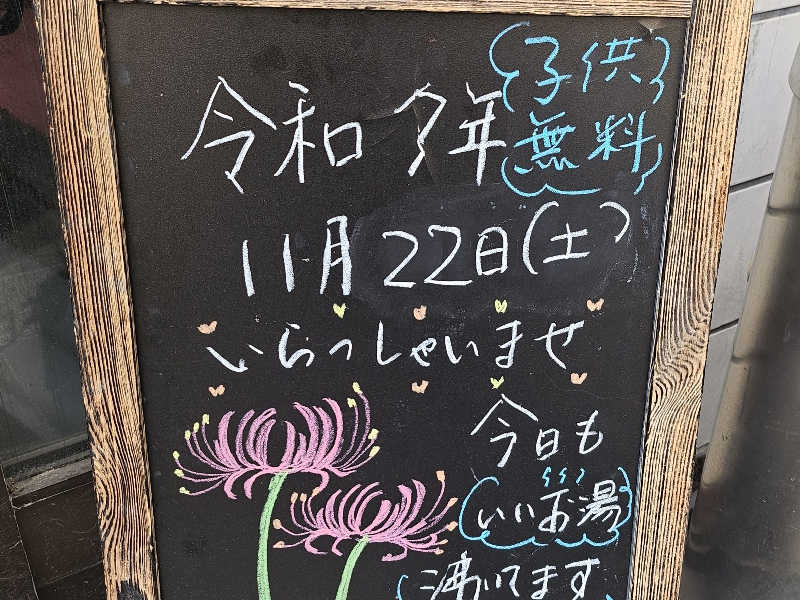 令和7年
子供
無料
11月22日(土)
いらっしゃいませ
今日も
いいお湯
沸いてます